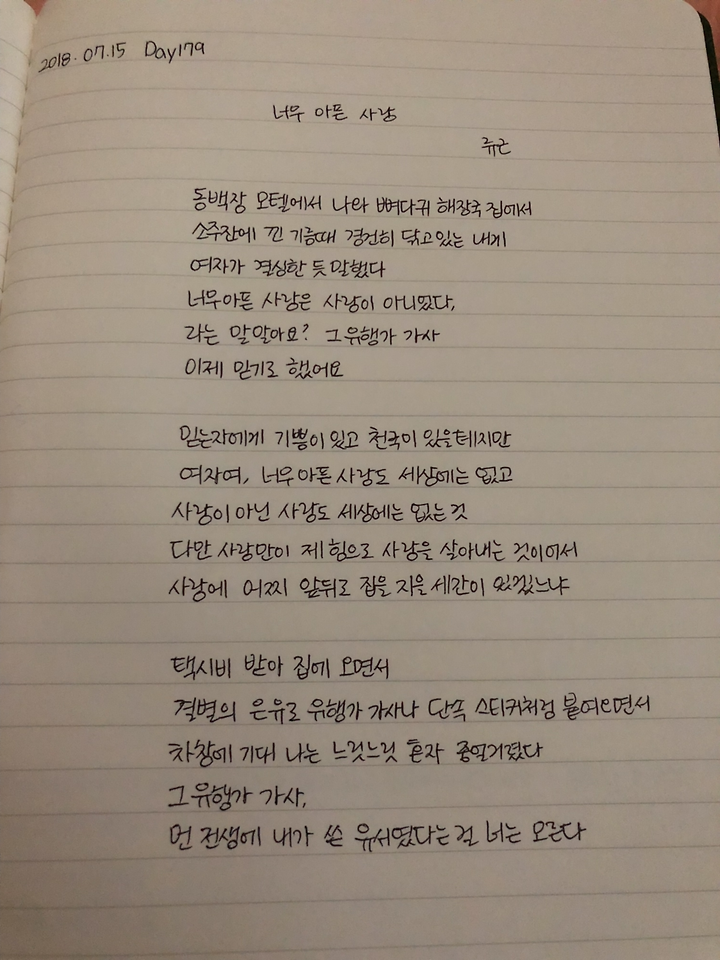 2018.07.15 Day179
너무 아픈 사랑
류근
동백장 모텔에서 나와 뼈다귀 해장국 집에서
소주잔에 낀 기름때 경건히 닦고있는 내게
여자가 결심한 듯 말했다
너무아픈 사랑은 사랑이 아니었다,
라는 말 알아요? 그 유행가 가사
이제 믿기로 했어요
믿는자에게 기쁨이 있고 천국이 있을테지만
여자여, 너무 아픈 사랑도 세상에는 없고
사랑이 아닌 사랑도 세상에는 없는 것
다만 사랑만이 제 힘으로 사랑을 살아내는 것이어서
사랑에 어찌 앞뒤로 집을 지을 세간이 있겠느냐
택시비 받아 집에 오면서
결별의 은유로 유행가 가사나 단속 스티커처럼 붙여오면서
차창에 기대 나는 느릿느릿 혼자 중얼거렸다
그 유행가 가사,
먼 전생에 내가 쓴 유서였다는 걸 너는 모른다